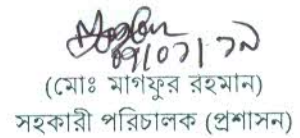 ০৭/০১/১৯
(মোঃ মাগফুর রহমান)
সহকারী পরিচালক (প্রশাসন)